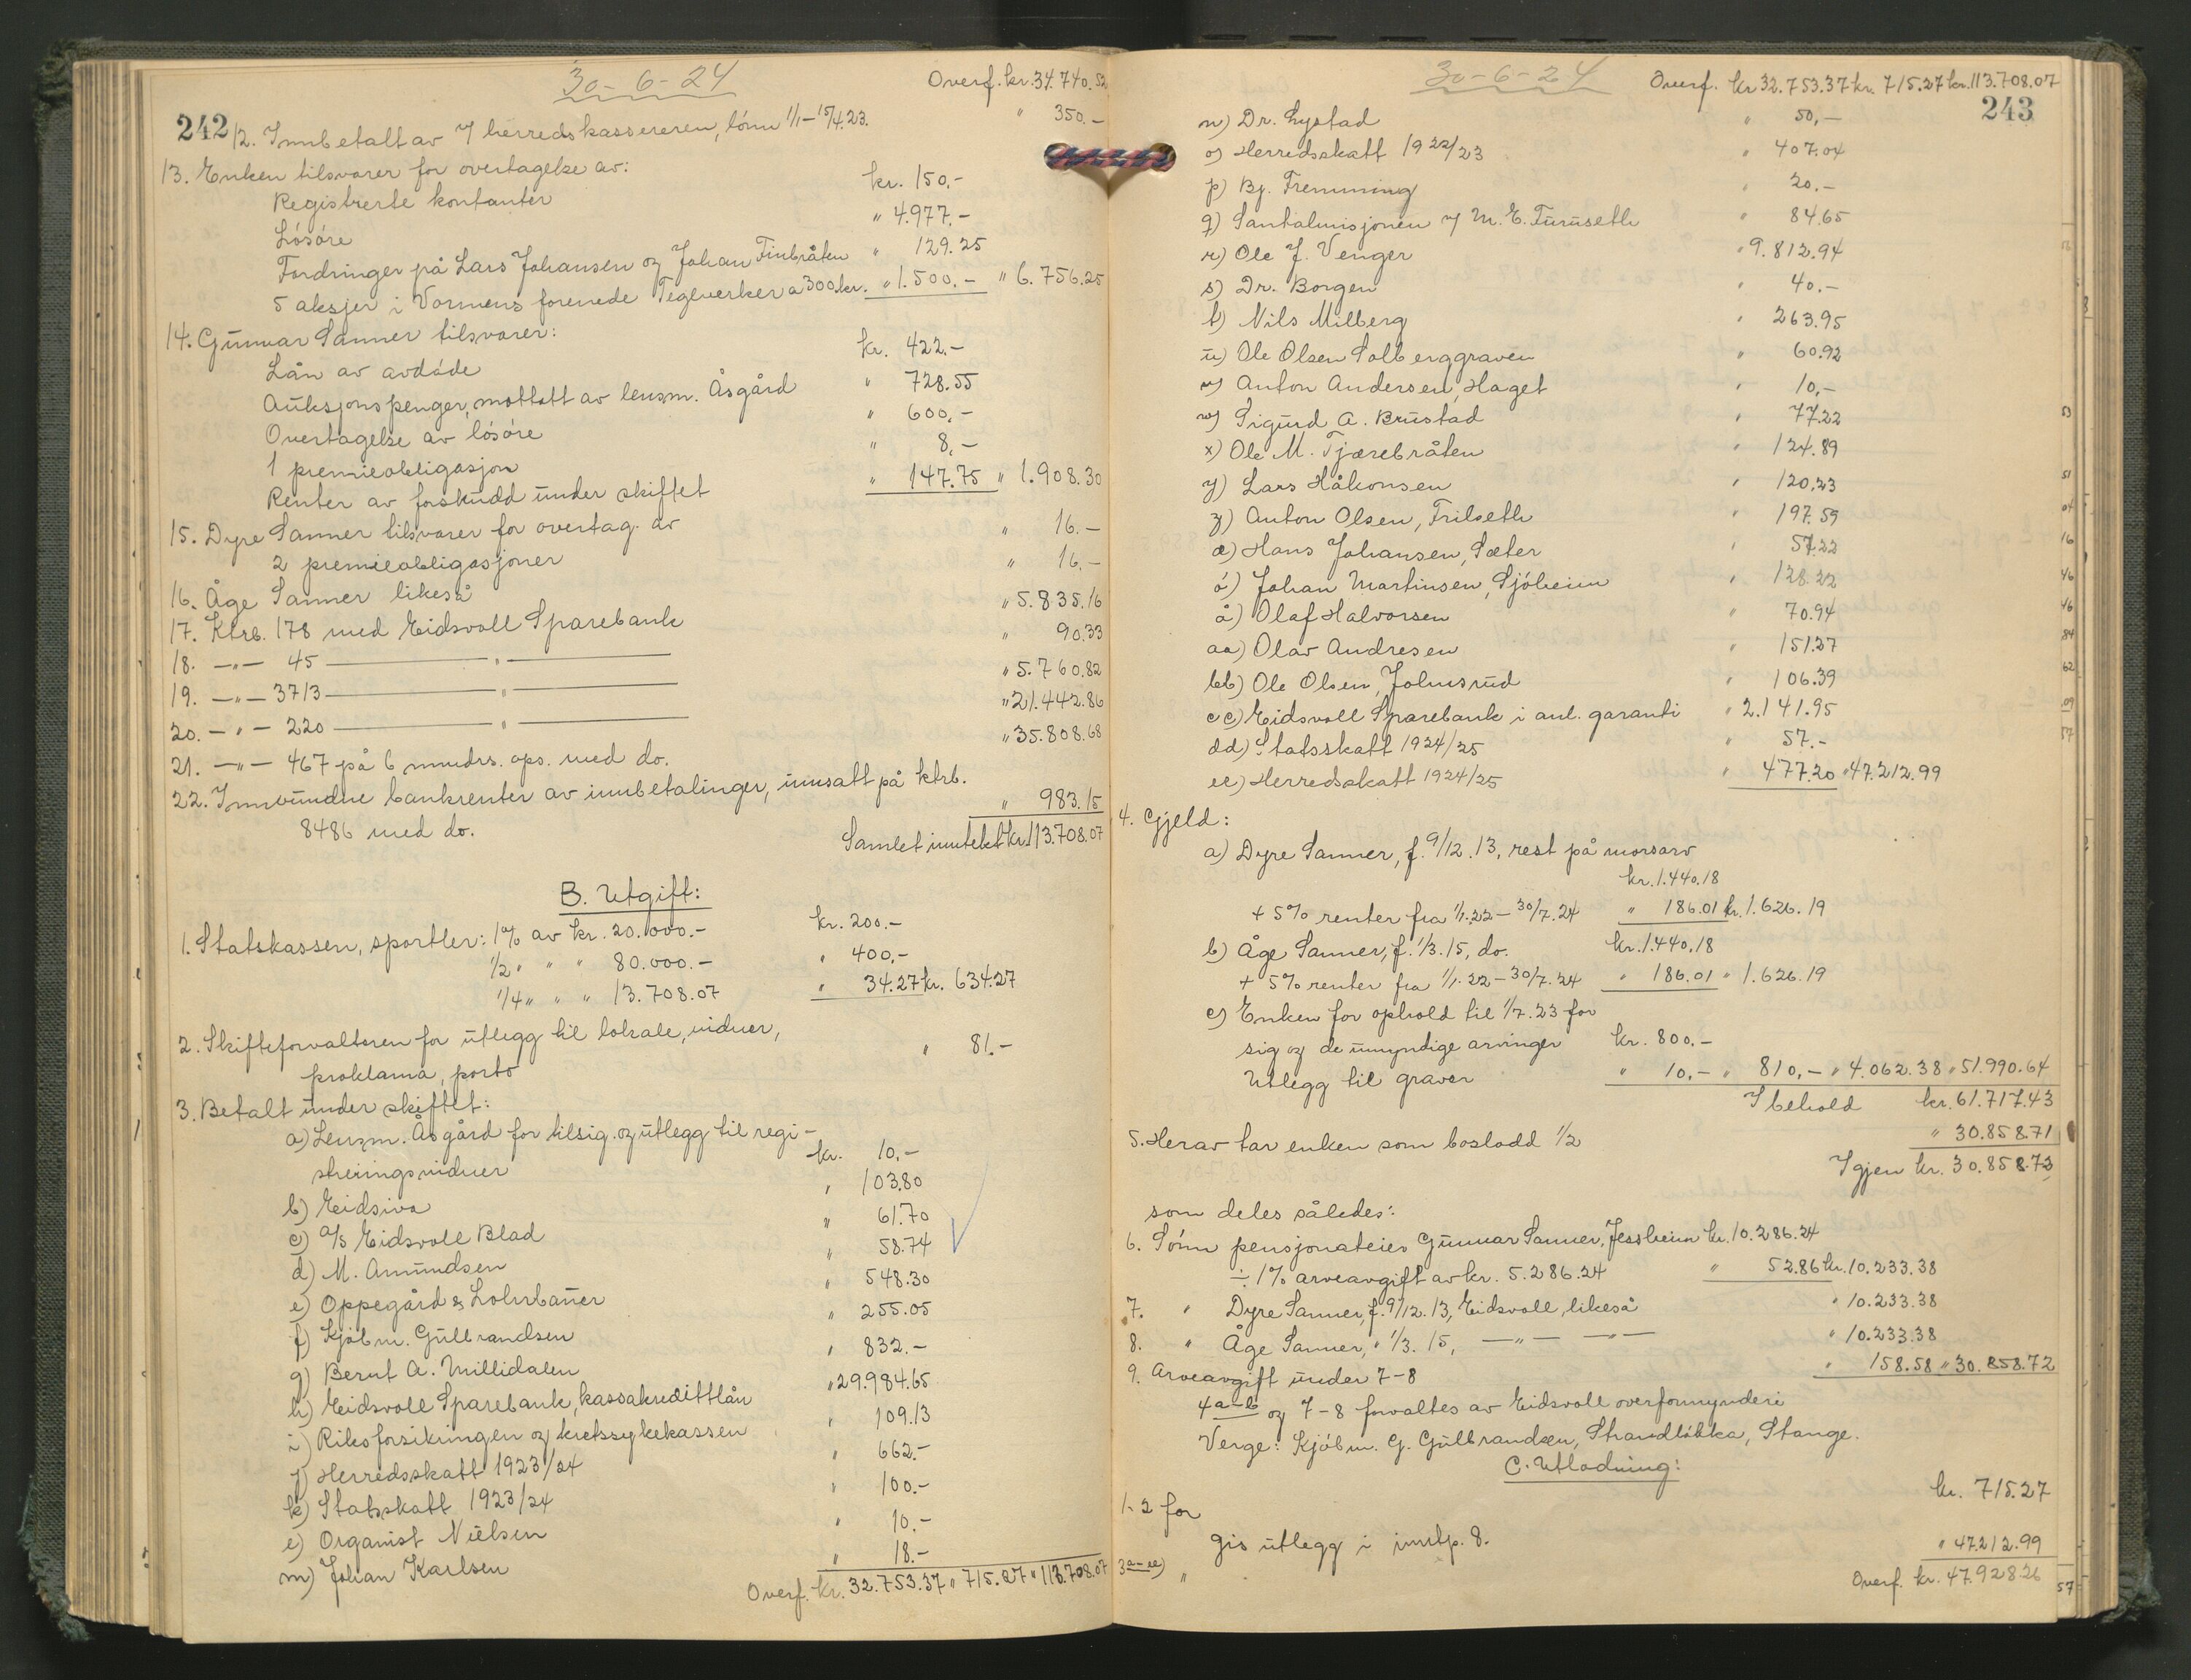 242
30-6-24
Overf. kr. 34.740.52
12. Innbetalt av herredskassereren, lönn 1/1-15/4.23. " 350.-
13. Enken tilsvarer for overtagelse av:
Registrerte kontanter kr. 150.-
Lösöre " 4.977.-
Fordringer på Lars Johansen og Johan Finbråten " 129.25
5 aksjer i Vormens forenede Teglverker a 300 kr. " 1.500.- " 6.756.25
14. Gunnar Sanner tilsvarer:
Lån av avdöde kr. 422.-
Auksjonspenger, mottatt av lensm. Åsgård " 728.55
Overtagelse av lösöre " 600.-
1 premieobligasjon " 8.-
Renter av forskudd under skiftet " 147.75 " 1.908.30
15. Dyre Sanner tilsvarer for overtag. av
2 premieobligasjoner " 16.-
16. Åge Sanner likeså " 16.-
17. Ktrb. 178 med Eidsvoll Sparebank " 5.835.16
18. -"- 45 " " 90.33
19. -"- 3713 " " 5.760.82
20. -"- 220 " " 21.442.86
21. -"- 467 på 6 mndrs. ops. med do. " 35.808.68
22. Innvundne bankrenter av innbetalinger, innsatt på ktrb.
8486 med do. " 983.15
Samlet inntekt kr. 113.708.07
B. Utgift:
1. Statskassen, sportler: 1% av kr. 20.000.- kr. 200.-
1/2 " " " 80.000.- " 400.-
1/4 " " " 13.708.07 " 34.27 kr. 634.27
2. Skifteforvalteren for utlegg til lokale, vidner,
proklama, porto " 81.-
3. Betalt under skiftet:
a) Lensm. Åsgård for tilsig. og utlegg til regi-
streringsvidner kr. 10.-
b) Eidsiva " 103.80
c) A/S Eidsvoll Blad " 61.70
d) M. Amundsen " 58.74
e) Oppegård & Lohrbauer " 548.30
f) Kjöbm. Gulbrandsen " 255.05
g) Bernt A. Millidalen " 832.-
h) Eidsvoll Sparebank, kassakredittlån " 29.984.65
i) Riksforsikringen og kretssykekassen " 109.13
j) Herredsskatt 1923/24 " 662.-
k) Statsskatt 1923/24 " 100.-
l) Organist Nielsen " 10.-
m) Johan Karlsen " 18.-
Overf. kr. 32.753.37 " 715.27 " 113.708.07
30-6-24
Overf. kr 32.753.37 kr. 715.27 kr. 113.708.07
243
n) Dr. Lystad " 50.-
o) Herredsskatt 1922/23 " 407.04
p) Bj. Fremming " 20.-
q) Santalmisjonen v/ M. E. Furuseth " 84.65
r) Ole J. Venger " 9.812.94
s) Dr. Borgen " 40.-
t) Nils Milberg " 263.95
u) Ole Olsen Solberggraven " 60.92
v) Anton Andersen, Haget " 10.-
w) Sigurd A. Brustad " 77.22
x) Ole M. Tjærebråten " 124.89
y) Lars Håkonsen " 120.23
z) Anton Olsen, Trilseth " 197.59
æ) Hans Johansen, Sæter " 57.22
ö) Johan Martinsen, Sjöheim " 128.22
å) Olaf Halvorsen " 70.94
aa) Olav Andresen " 151.27
bb) Ole Olsen, Johnsrud " 106.39
cc) Eidsvoll Sparebank i anl. garanti " 2.141.95
dd) Statsskatt 1924/25 " 57.-
ee) Herredsskatt 1924/25 " 477.20 " 47.212.99
4. Gjeld:
a) Dyre Sanner, f. 9/12.13, rest på morsarv
kr. 1.440.18
+ 5% renter fra 1/1.22-30/7.24 " 186.01 kr. 1.626.19
b) Åge Sanner, f. 1/3.15, do. kr. 1.440.18
+ 5% renter fra 1/1.22-30/7.24 " 186.01 " 1.626.19
c) Enken for ophold til 1/7.23 for
sig og de umyndige arvinger kr. 800.-
Utlegg til graver " 10.- " 810.- " 4.062.38 " 51.990.64
I behold kr. 61.717.43
5. Herav tar enken som boslodd 1/2 " 30.858.71
Igjen kr. 30.858.72
som deles således:
6. Sönn pensjonateier Gunnar Sanner, Jessheim kr. 10.286.24
÷ 1% arveavgift av kr. 5.286.24 " 52.86 kr. 10.233.38
7. " Dyre Sanner, f. 9/12.13, Eidsvoll, likeså " 10.233.38
8. " Åge Sanner, " 1/3.15, -"- -"- " 10.233.38
9. Arveavgift under 7-8 " 158.58 " 30.858.72
4a-b og 7-8 forvaltes av Eidsvoll overformynderi
Verge: Kjöbm. G. Gulbrandsen, Strandlökka, Stange.
C. Utlodning:
1-2 for kr. 715.27
gis utlegg i inntp. 8.
3a-ee) " " 47.212.99
Overf. kr. 47.928.26